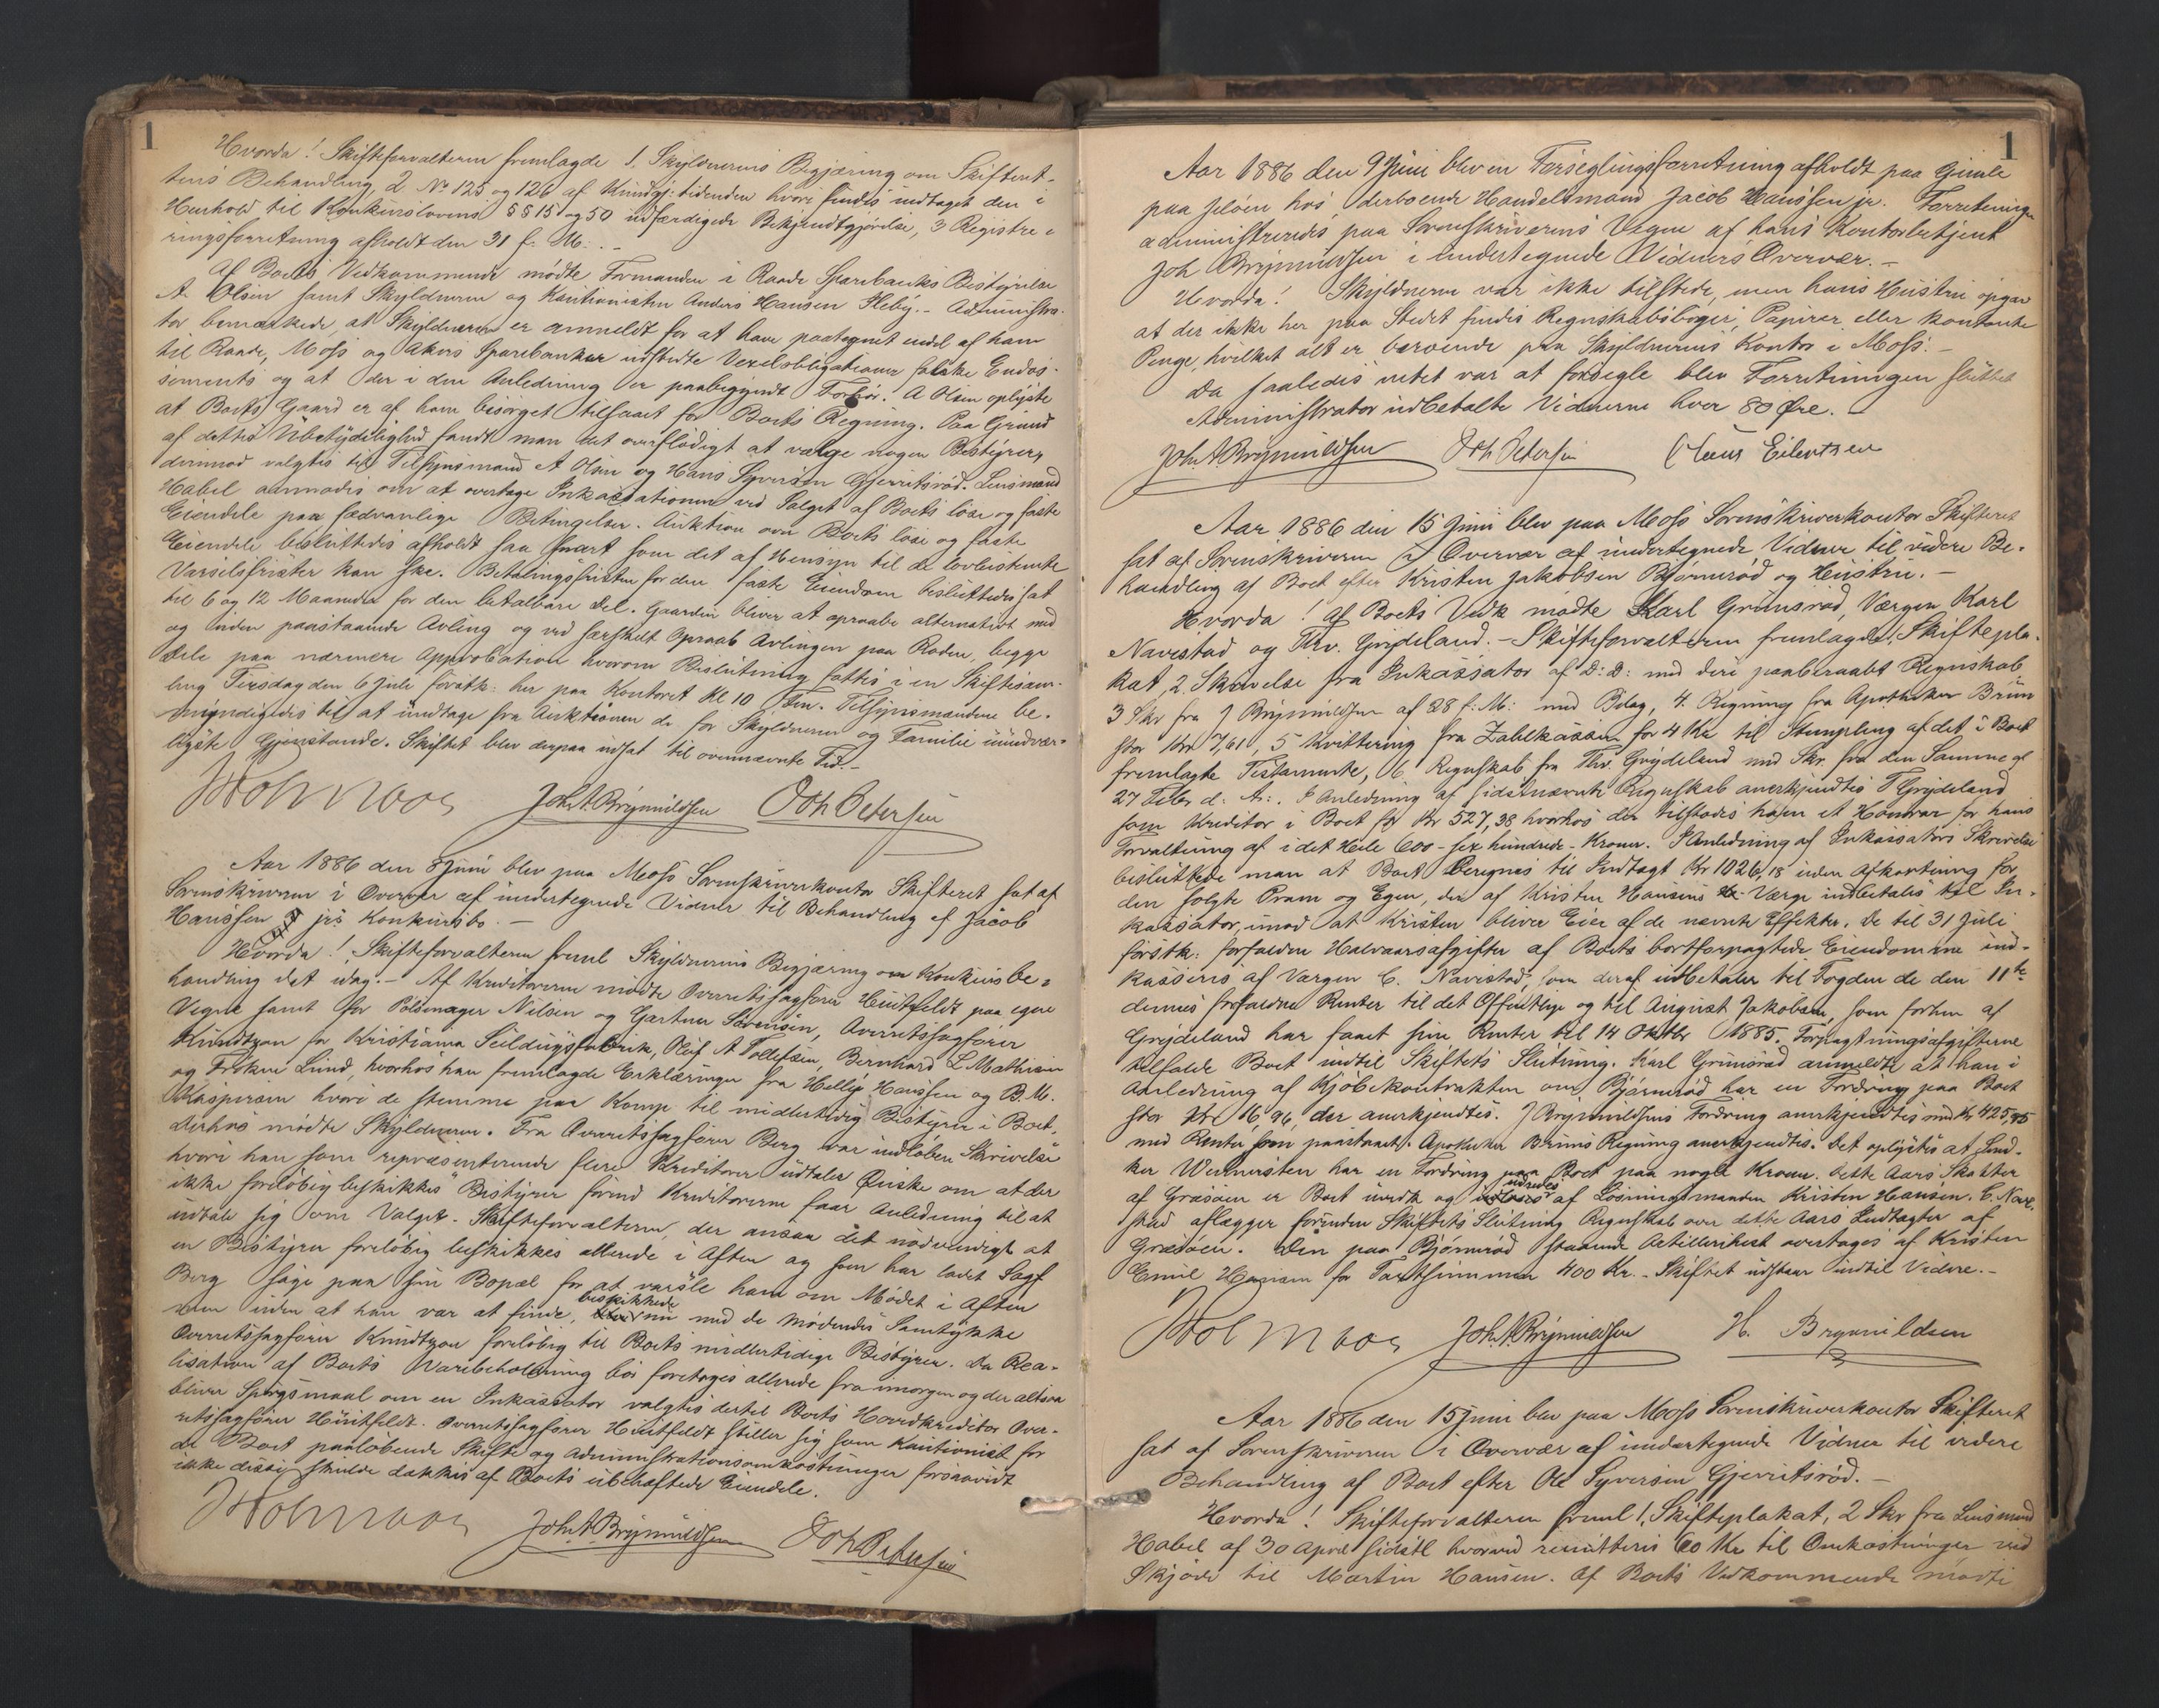 1
Hvorda! Skifteforvalteren fremlagde 1. Skyldnerens Begjæring om Skifteret-
tens Behandling, 2 No 125 og 126 af Kundgj. tidenden hvori findes indtaget den i
Henhold til Konkurslovens §§ 15 og 50 udfærdigede Bekjendtgjørelse, 3 Registre-
ringsforretning afholdt den 31 f. M. -
Af Boets Vedkommende mødte Formanden i Raade Sparebanks Bestyrelse
A. Olsen samt Skyldneren og Kautionisten Anders Hansen Heby. - Administra-
tor bemærkede, at Skyldneren er anmeldt for at have paategnet endel af ham
til Raade, Moss og Akers Sparebanker udstedte Vexelobligationer falske Endos-
sements og at der i den Anledning er paabegyndt Forhør. A Olsen oplyste
at Boets Gaard er af ham besørget tilsaaet for Boets Regning. Paa Grund
af dettes Ubetydelighed fandt man det overflødigt at vælge nogen Bestyrer,
derimod valgtes til Tilsynsmænd A Olsen og Hans Syversen Gjerritsrød. Lensmand
Habel anmodes om at overtage Inkassationen ved Salget af Boets løse og faste
Eiendele paa sædvanlige Betingelser. Auktion over Boets løse og faste
Eiendele besluttedes afholdt saa snart som det af Hensyn til de lovbestemte
Varselsfrister kan ske. Betalingsfristen for den faste Eiendom besluttedes sat
til 6 og 12 Maaneder for den betalbare Del. Gaarden bliver at opraabe alternativt med
og uden paastaaende Avling og ved særskilt Opraab Avlingen paa Roden, begge
Dele paa nærmere Approbation hvorom Beslutning fattes i en Skiftesam-
ling Tirsdag den 6 Juli førstk. her paa Kontoret Kl 10 Fm. Tilsynsmændene be-
myndigedes til at undtage fra Auktionen de for Skyldneren og Familie uundvær-
ligste Gjenstande. Skiftet blev derpaa udsat til ovennævnte Tid. -
Joh. A. Brynildsen Oth Petersen
Aar 1886 den 8 Juni blev paa Moss Sorenskriverkontor Skifteret sat af
Sorenskriveren i Overvær af undertegnede Vidner til Behandling af Jacob
Hanssen jrs Konkursbo. -
Hvorda! Skifteforvalteren freml Skyldnerens Begjæring om Konkursbe-
handling dat idag. - Af Kreditorerne mødte Overretssagfører Huitfeldt paa egne
Vegne samt for Pølsemager Nilsen og Gartner Sørensen, Overretssagfører
Knudtzon for Kristiania Seildugsfabrik, Olaf A Tollefsen, Bernhard L Mathisen
og Frøken Lund, hvorhos han fremlagde Erklæringer fra Hellip Hanssen og B. M.
Kaspersen hvori de stemme paa Komp til midlertidig Bestyrer i Boet.
Derhos mødte Skyldneren. Fra Overretssagfører Berg var indløben Skrivelse
hvori han som repræsenterende flere Kreditorer udtaler Ønske om at der
ikke foreløbig beskikkes Bestyrer førend Kreditorerne faar Anledning til at
udtale sig om Valget. Skifteforvalteren, der ansaa det nødvendigt at
en Bestyrer foreløbig beskikkes allerede i Aften og som har ladet Sagf
Berg søge paa sin Bopæl for at varsle ham om Mødet i Aften
men uden at han var at finde, beskikkede nu med de Mødendes Samtykke
Overretssagfører Knudtzon foreløbig til Boets midlertidige Bestyrer. Da Rea-
lisation af Boets Varebeholdning bør foretages allerede fra imorgen og der altsaa
bliver Spørgsmaal om en Inkassator valgtes dertil Boets Hovedkreditor Over-
retssagfører Huitfeldt. Overretssagfører Huitfeldt stiller sig som Kautionist for
de Boet paaløbende Skifte og Administrationsomkostninger forsaavidt
ikke disse skulde dækkes af Boets ubehæftede Eiendele.
Joh. A. Brynildsen Oth Petersen
1
Aar 1886 den 9 Juni blev en Forseglingsforretning afholdt paa Gimle
paa Jeløen hos derboende Handelsmand Jacob Hanssen jr. Forretningen
administreredes paa Sorenskriverens Vegne af hans Kontorbetjent
Joh Brynildsen i undertegnede Vidners Overvær. -
Hvorda! Skyldneren var ikke tilstede, men hans Hustru opgav
at der ikke her paa Stedet findes Regnskabsbøger, Papirer eller kontante
Penge, hvilket alt er beroende paa Skyldnerens Kontor i Moss. -
Da saaledes intet var at forsegle blev Forretningen sluttet
Administrator udbetalte Vidnerne hver 80 Øre. -
Joh. A Brynildsen Oth Petersen Claus Eilertsen
Aar 1886 den 15 Juni blev paa Moss Sorenskriverkontor Skifteret
sat af Sorenskriveren i Overvær af undertegnede Vidner til videre Be-
handling af Boet efter Kristen Jakobsen Bjørnerød og Hustru. -
Hvorda! Af Boets Vedk mødte Karl Grimsrød, Værgen Karl
Navestad og Thv. Grydeland. - Skifteforvalteren fremlagde 1. Skiftepla-
kat, 2. Skrivelse fra Inkassator af D: D: med deri paaberaabt Regnskab
3 Skr fra J Brynildsen af 28 f: M: med Bilag, 4. Regning fra Apotheker Brun
stor Kr 7,61, 5 Kvittering fra Zahlkassen for 4 Kr til Stempling af det i Boet
fremlagte Testamente, 6. Regnskab fra Thv. Grydeland med Skr. fra den Samme af
27 Febr d: A:. I Anledning af sidstnævnte Regnskab anerkjendtes T Grydeland
som Kreditor i Boet for Kr 527,38 hvorhos der tilstodes ham et Honorar for hans
Forvaltning af i det Hele 600 - sex hundrede - Kroner. I Anledning af Inkassators Skrivelse
besluttede man at Boet beregnes til Indtægt Kr 1026,18 uden Afkortning for
den solgte Pram og Egen, der af Kristen Hansens Værge indbetales til In-
kassator, imod at Kristen bliver Eier af de nævnte Effekter. De til 31 Juli
førstk: forfaldne Halvaarsafgifter af Boets bortforpagtede Eiendomme ind-
kasseres af Værgen C. Navestad, som deraf udbetaler til Fogden de den 11te
dennes forfaldne Renter til det Offentlige og til August Jakobsen, som forhen af
Grydeland har faaet sine Renter til 14 Oktbr 1885. Forpagtningsafgifterne
tilfalde Boet indtil Skiftets Slutning. Karl Grimsrød anmeldte at han i
Anledning af Kjøbekontrakten om Bjørnerød har en Fordring paa Boet
stor Kr 16,96, der anerkjendtes. J Brynildsens Fordring anerkjendtes med Kr 425,95
med Renter som paastaaet. Apotheker Bruns Regning anerkjendtes. Det oplystes at Snd-
ker Wernersten har en Fordring paa Boet paa nogle Kroner. Dette Aars Skatter
af Græsøen er Boet uvedk og udredes af Løsningsmanden Kristen Hansen. C. Nave-
stad aflægger forinden Skiftets Slutning Regnskab over dette Aars Indtægter af
Græsøen. Den paa Bjørnerød staaende Artillerihest overtages af Kristen
Emil Hansen for Taxtsummen 400 Kr. - Skiftet udstaar indtil Videre. -
Joh. A. Brynildsen H. Brynildsen
Aar 1886 den 15 Juni blev paa Moss Sorenskriverkontor Skifteret
sat af Sorenskriveren i Overvær af undertegnede Vidner til videre
Behandling af Boet efter Ole Syversen Gjerritsrød. -
Hvorda! Skifteforvalteren freml 1, Skifteplakat, 2 Skr fra Lensmand
Habel af 30 April sidstl hvorved remitteres 60 Kr til Omkostninger ved
Skjøde til Martin Hansen. Af Boets Vedkommende mødte